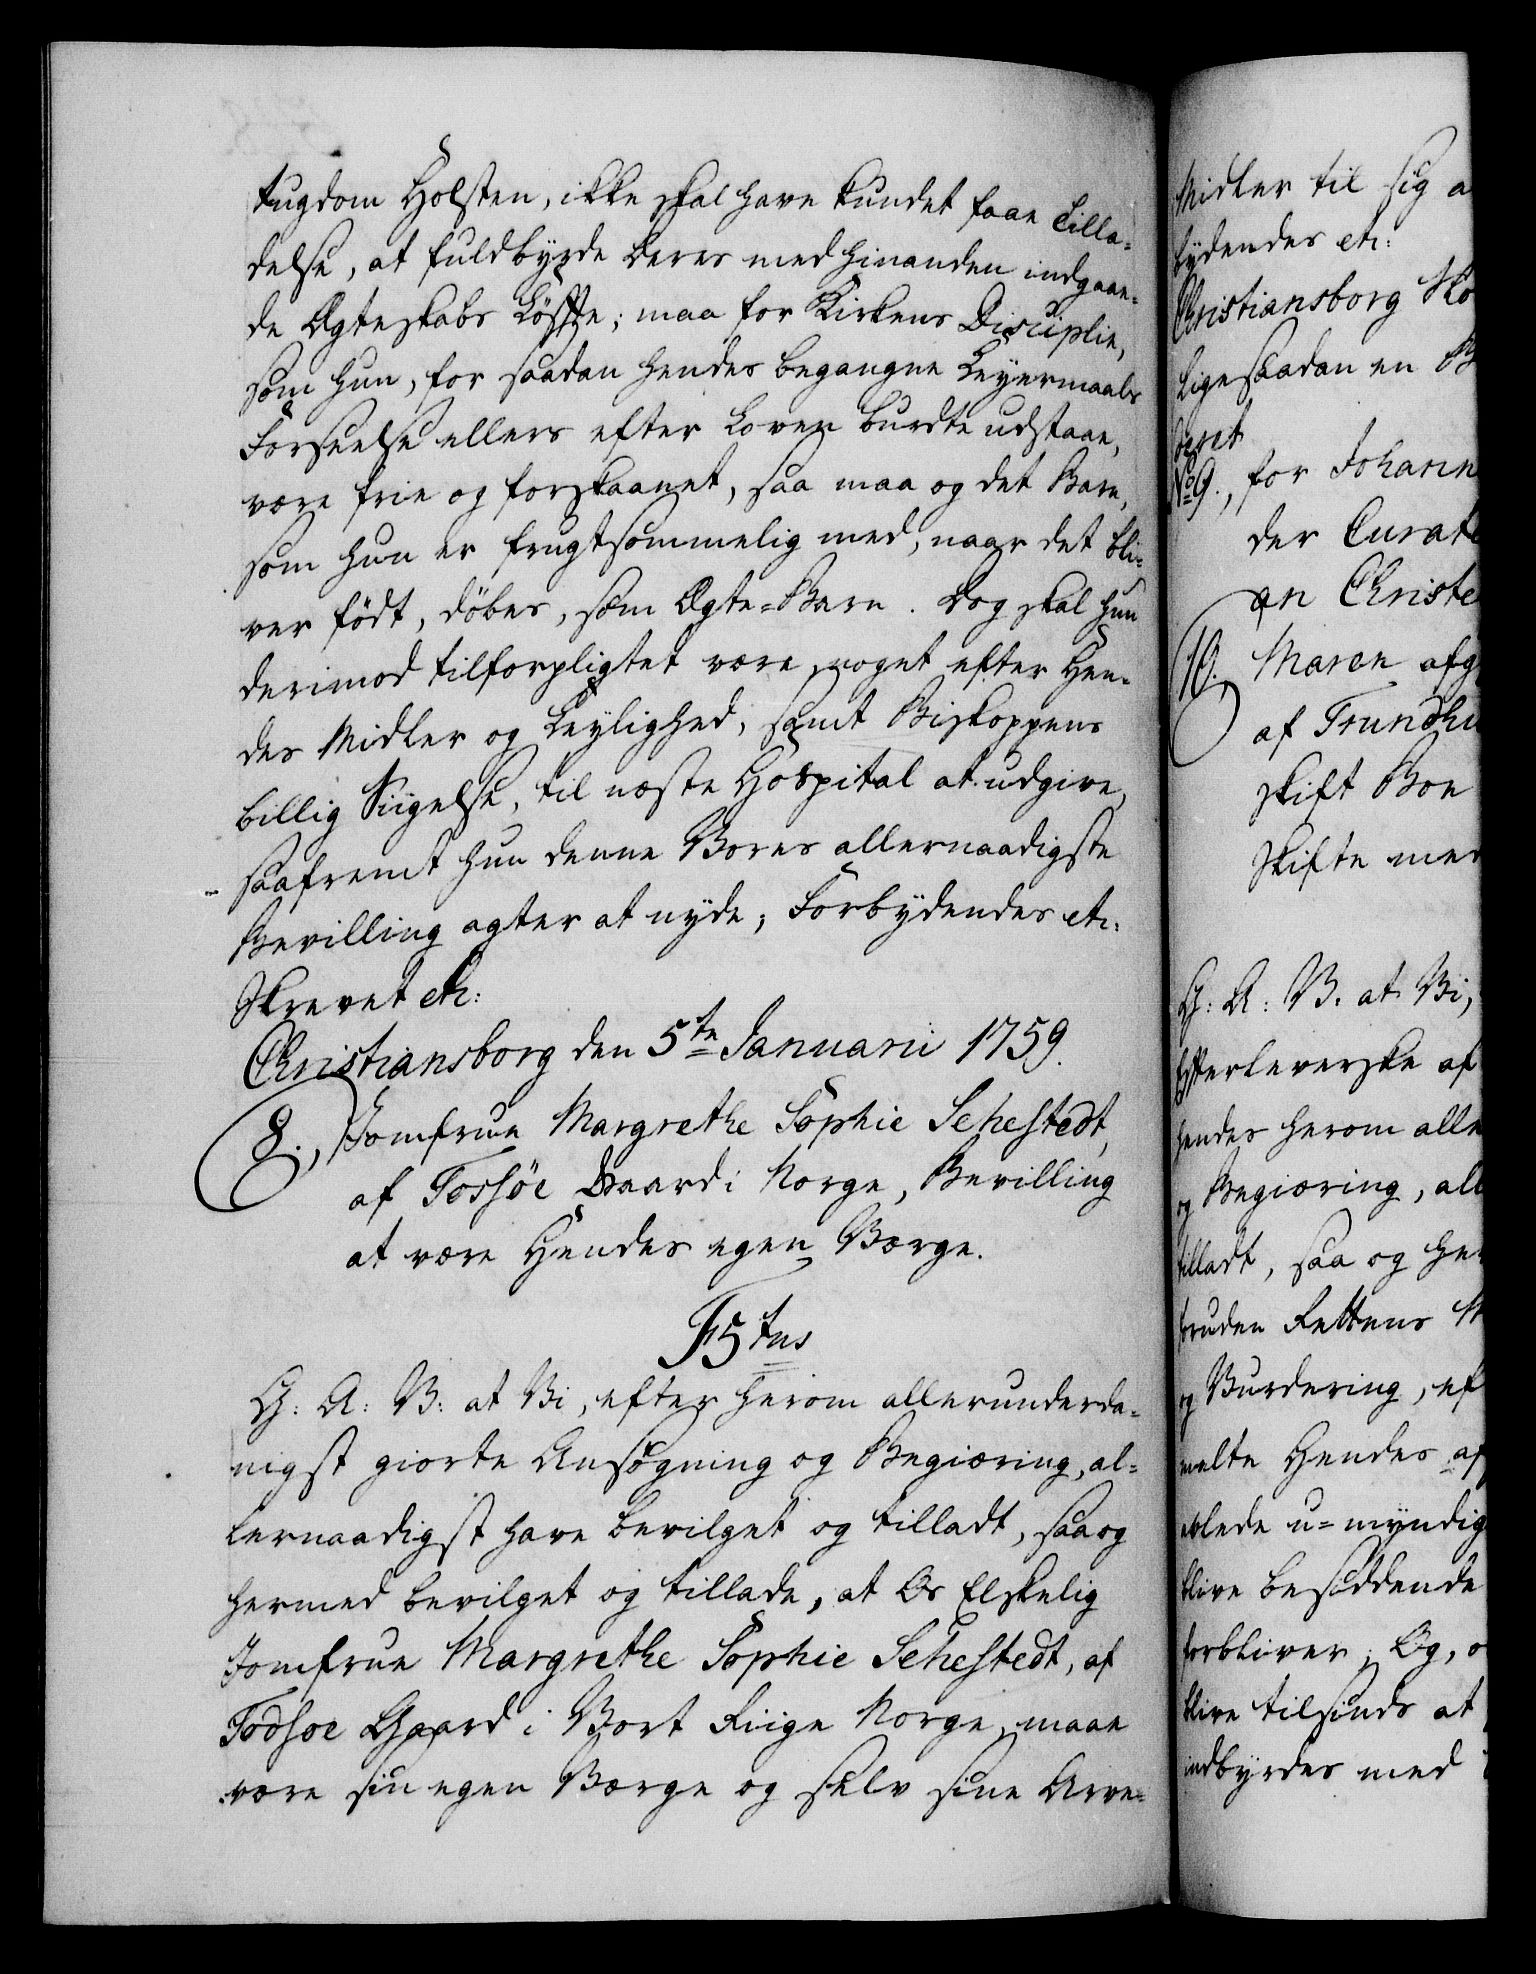 tugdom Holsten, ikke skal have kundet faae Tilla-
delse, at fuldbyrde deres med hinanden indgaae-
de Ægteskabs Løffte; maa for Kirkens Disciplin,
som hun, for saadan hendes begangne Leyermaals
Forseelse ellers efter Loven burdte udstaae,
være frie og forskaanet, saa maa og det Barn,
som hun er frugtsommelig med, naar det bli-
ver født, døbes, som Ægte-Barn. Dog skal hun
derimod tilforpligtet være, noget efter Hen-
des Midler og Leylighed, samt Biskoppens
billig Siigelse, til næste Hospital at udgive,
saafremt hun denne Vores allernaadigste
Bevilling agter at nyde; Forbydendes etc:
Skrevet etc:
Christiansborg den 5te Januarii 1759.
8., Jomfrue Margrethe Sophie Sehestedt,
af Tossøe Gaard i Norge, Bevilling
at være Hendes egen Værge.
F5tus
G: A: V: at Vi, efter herom allerunderda-
nigst giorte Ansøgning og Begiæring, al-
lernaadigst have bevilget og tilladt, saa og
hermed bevilget og tillade, at Os Elskelig
Jomfrue Margrethe Sophie Sehestedt, af
Todsoe Gaard i Vort Riige Norge, maae
være sin egen Værge og selv sine Arve-
Midler til sig a
bydendes etc:
Christiansborg Slo
Ligesaadan en B
No 9., for Johann
der Curate
an Christe
10., Maren afg
af Trundhi
skift Boe
Skifte med
G: A: V. at Vi,
Efterleverske af
hendes herom alle
og Begiæring, all
tilladt, saa og he
foruden Rettens M
og Vurdering, ef
melte Hendes af
avlede u-myndig
blive besiddende
forbliver; Og, o
blive tilsinds at
indbyrdes med